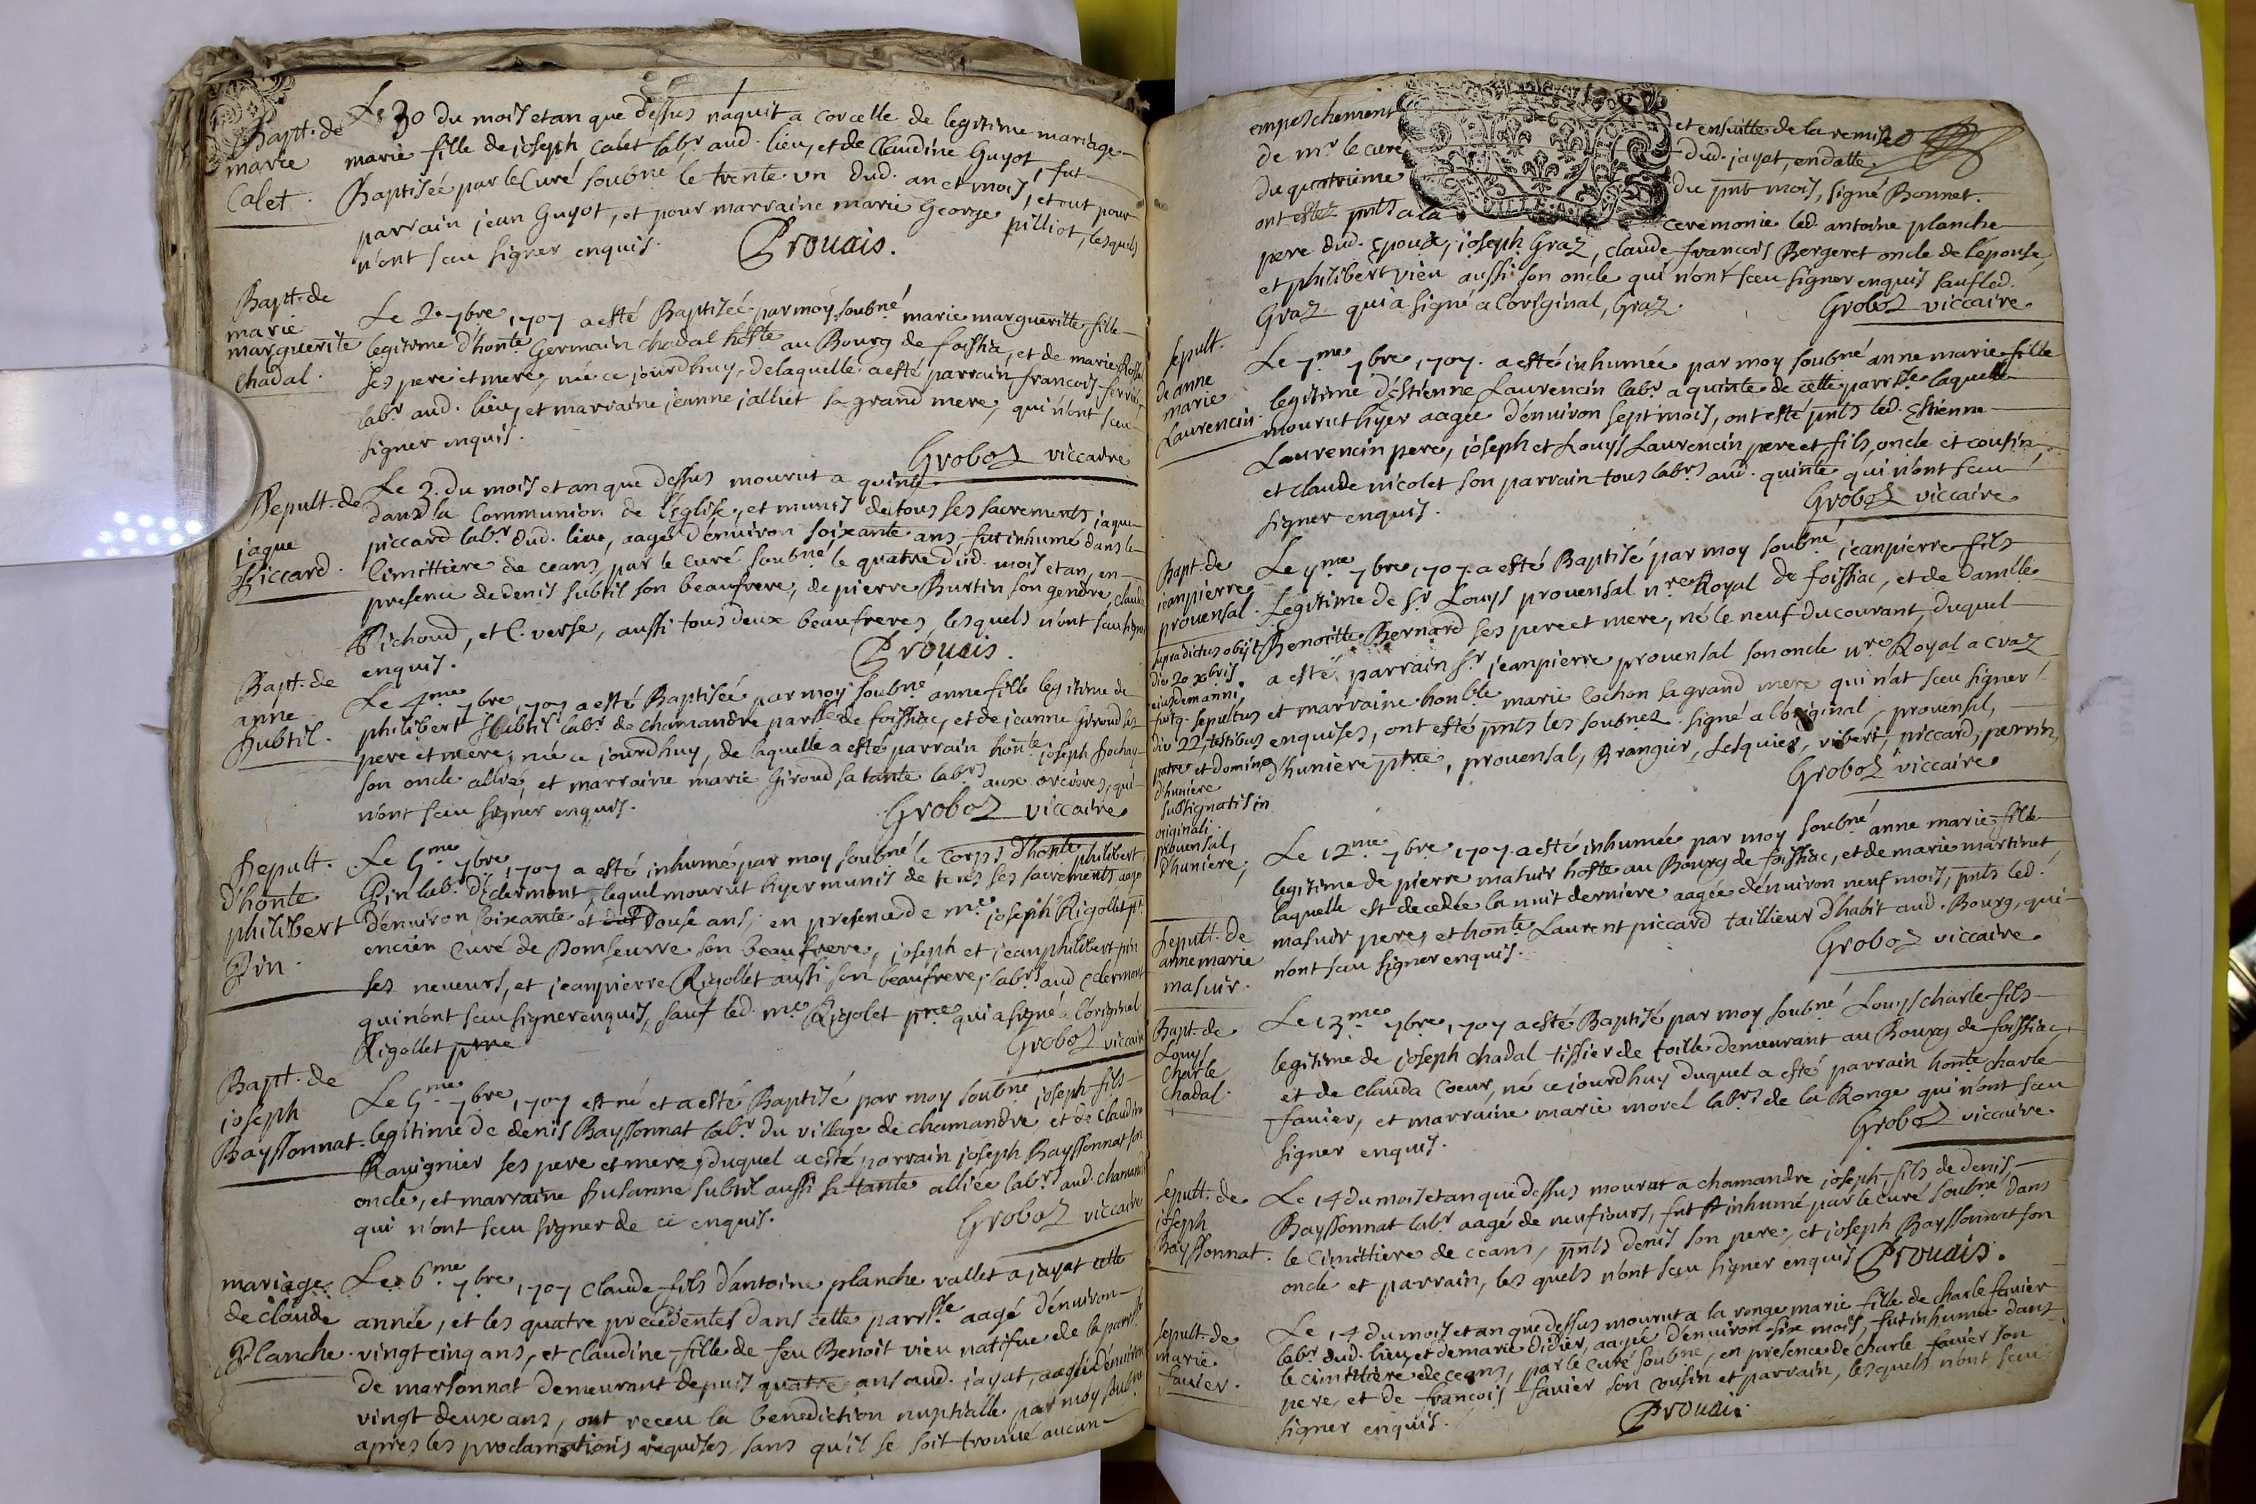 Bapt. de
marie
Calet.
Le 30 du mois et an que dessus naquit a corcelle de legitime mariage
marie fille de joseph Calet labr. aud. lieu, et de Claudine Guyot, fut
Baptisée par le Curé soubné le trente un dud. an et mois, et eut pour
parrain jean Guyot, et pour marraine marie George pilliot, lesquels
n'ont sceu signer enquis. Prouais.
Bapt. de
marie
marguerite
Chadal.
Le 2e 7bre 1707 a esté Baptisée par moy soubné marie margueritte fille
legitime d'honte. Germain chadal hoste au Bourg de foissia, et de marie
ses pere et mere, née ce jourdhuy, de laquelle a esté parrain francois
labr. aud. lieu, et marraine jeanne jalliet sa grand mere, qui n'ont sceu
signer enquis.
Groboz viccaire
Sepult. de
jaque
Piccard.
Le 3. du mois et an que dessus mourut a quinte
dans la Communion de l'Eglise, et munis de tous ses sacrements jaque
piccard labr. dud. lieu, aagé d'environ soixante ans, fut inhumé dans le
Cimittiere de ceans, par le curé soubné le quatre dud. mois et an, en
presence de denis subtil son beaufrere, de pierre Burtin son gendre claude
Pichoud, et C. verse, aussi tous deux beaufreres, lesquels n'ont sceu signer
enquis. Prouais.
Bapt. de
anne
Subtil.
Le 4me 7bre 1707 a esté Baptisée par moy soubné anne fille legitime de
philibert Subtil labr. de chamandre parsse de foissiac, et de jeanne Giroud ses
pere et mere, née ce jourdhuy, de laquelle a esté parrain honte joseph Bochay
son oncle allié, et marraine marie Giroud sa tante labrs aux orcieres, qui
n'ont sceu signer enquis. Groboz viccaire
Sepult.
d'honte
philibert
Pin.
Le 5me 7bre 1707 a esté inhumé par moy soubné le corps d'honte philibert
Pin labr. de clermont, lequel mourut hyer munis de tous ses sacrements, aagé
d'environ soixante et douse ans, en presence de mre joseph Rigollet pt.
encien Curé de Domseurre son beaufrere, joseph et jeanphilibert pin
ses neveurs, et jeanpierre Rigollet aussi son beaufrere, labrs aud clermont
qui n'ont sceu signer enquis, sauf led. mre Rigolet ptre qui a signé a l'original
Rigollet ptre Groboz viccaire
Bapt. de
joseph
Bayssonnat.
Le 5me 7bre 1707 est né et a esté Baptisé par moy soubné joseph fils
legitime de denis Bayssonnat labr. du village de chamandre et de claudine
Ravignier ses pere et mere, duquel a esté parrain joseph Bayssonnat son
oncle, et marraine Susanne subtil aussi sa tante alliée labrs aud. chamandre
qui n'ont sceu signer de ce enquis. Groboz viccaire
mariage
de claude
Planche.
Le 6me 7bre 1707 Claude fils d'antoine planche vallet a jayat cette
année, et les quatre precedentes dans cette parsse aagé d'environ
vingt cinq ans, et claudine fille de feu Benoit vieu natifue de la parsse
de marsonnat demeurant depuis quatre ans aud. jayat, aagée d'environ
vingt deux ans, ont receu la benediction nuptialle par moy soubné
apres les proclamations requises sans qu'il se soit trouvé aucun
empeschement et ensuitte de la remise
de mr. le curé dud. jayat, en datte
du quatrieme du pnt mois, signé Bonnet.
ont estez pnts a la ceremonie led. antoine planche
pere dud. Epoux, joseph Graz, claude francois Bergeret oncle de l'épouse,
et philibert vieu aussi son oncle qui n'ont sceu signer enquis sauf led.
Graz qui a signé a l'original, Graz. Groboz viccaire
Sepult.
de anne
marie
Laurencin.
Le 7me 7bre 1707. a esté inhumée par moy soubné anne marie fille
legitime d'Estienne Laurencin labr. a quinte de cette parrsse laquelle
mourut hyer aagée d'environ sept mois, ont esté pnts led. Estienne
Laurencin pere, joseph et Louys Laurencin pere et fils, oncle et cousin,
et claude nicolet son parrain tous labrs aud. quinte qui n'ont sceu
signer enquis. Groboz viccaire
Bapt. de
jeanpierre
provensal.
supradictus obijt
die 20 xbris
ejusdem anni
fuitq. sepultus
die 22, testibus
patre et domino
d'huniere
subsignatis in
originali.
provensal,
d'huniere,
Le 9me 7bre 1707. a esté Baptisé par moy soubné jeanpierre fils
Legitime de sr. Louys provensal nre Royal de foissiac, et de damlle
Benoitte Bernard ses pere et mere, né le neuf du courant, duquel
a esté parrain sr. jeanpierre provensal son oncle nre Royal a Craz
et marraine honble marie Cochon sa grand mere qui n'at sceu signer
enquises, ont esté pnts les soubnez. signé a l'original, provensal,
d'huniere ptre, provensal, Brangier, Lesquier, vibert, piccard, perrin,
Groboz viccaire
Sepult. de
anne marie
masuir.
Le 12me 7bre 1707 a esté inhumée par moy soubné anne marie fille
legitime de pierre masuir hoste au Bourg de foissiac, et de marie martinet
laquelle est decedée la nuit derniere aagée d'environ neuf mois, pnts led.
masuir pere, et honte Laurent piccard taillieur d'habit aud. Bourg, qui
n'ont sceu signer enquis. Groboz viccaire
Bapt. de
Louys
Charle
Chadal.
Le 13me 7bre 1707 a esté Baptisé par moy soubné Louys charle fils
legitime de joseph chadal tissier de toille demeurant au Bourg de foissiac,
et de clauda Coeur, né ce jourdhuy duquel a esté parrain honte charle
favier, et marraine marie morel labrs de la Ronge qui n'ont sceu
signer enquis. Groboz viccaire
Sepult. de
joseph
Bayssonnat.
Le 14 du mois et an que dessus mourut a chamandre joseph, fils de denis
Bayssonnat labr aagé de neuf jours, fut inhumé par le curé soubné dans
le Cimittiere de ceans, pnts denis son pere, et joseph Bayssonnat son
oncle et parrain, lesquels n'ont sceu signer enquis Prouais.
Sepult. de
marie
favier.
Le 14 du mois et an que dessus mourut a la ronge marie fille de charle favier
labr dud. lieu, et de marie Didier, aagée d'environ six mois, fut inhumée dans
le cimittiere de ceans, par le curé soubné, en presence de charle favier son
pere, et de francois favier son cousin et parrain, lesquels n'ont sceu
signer enquis. Prouais